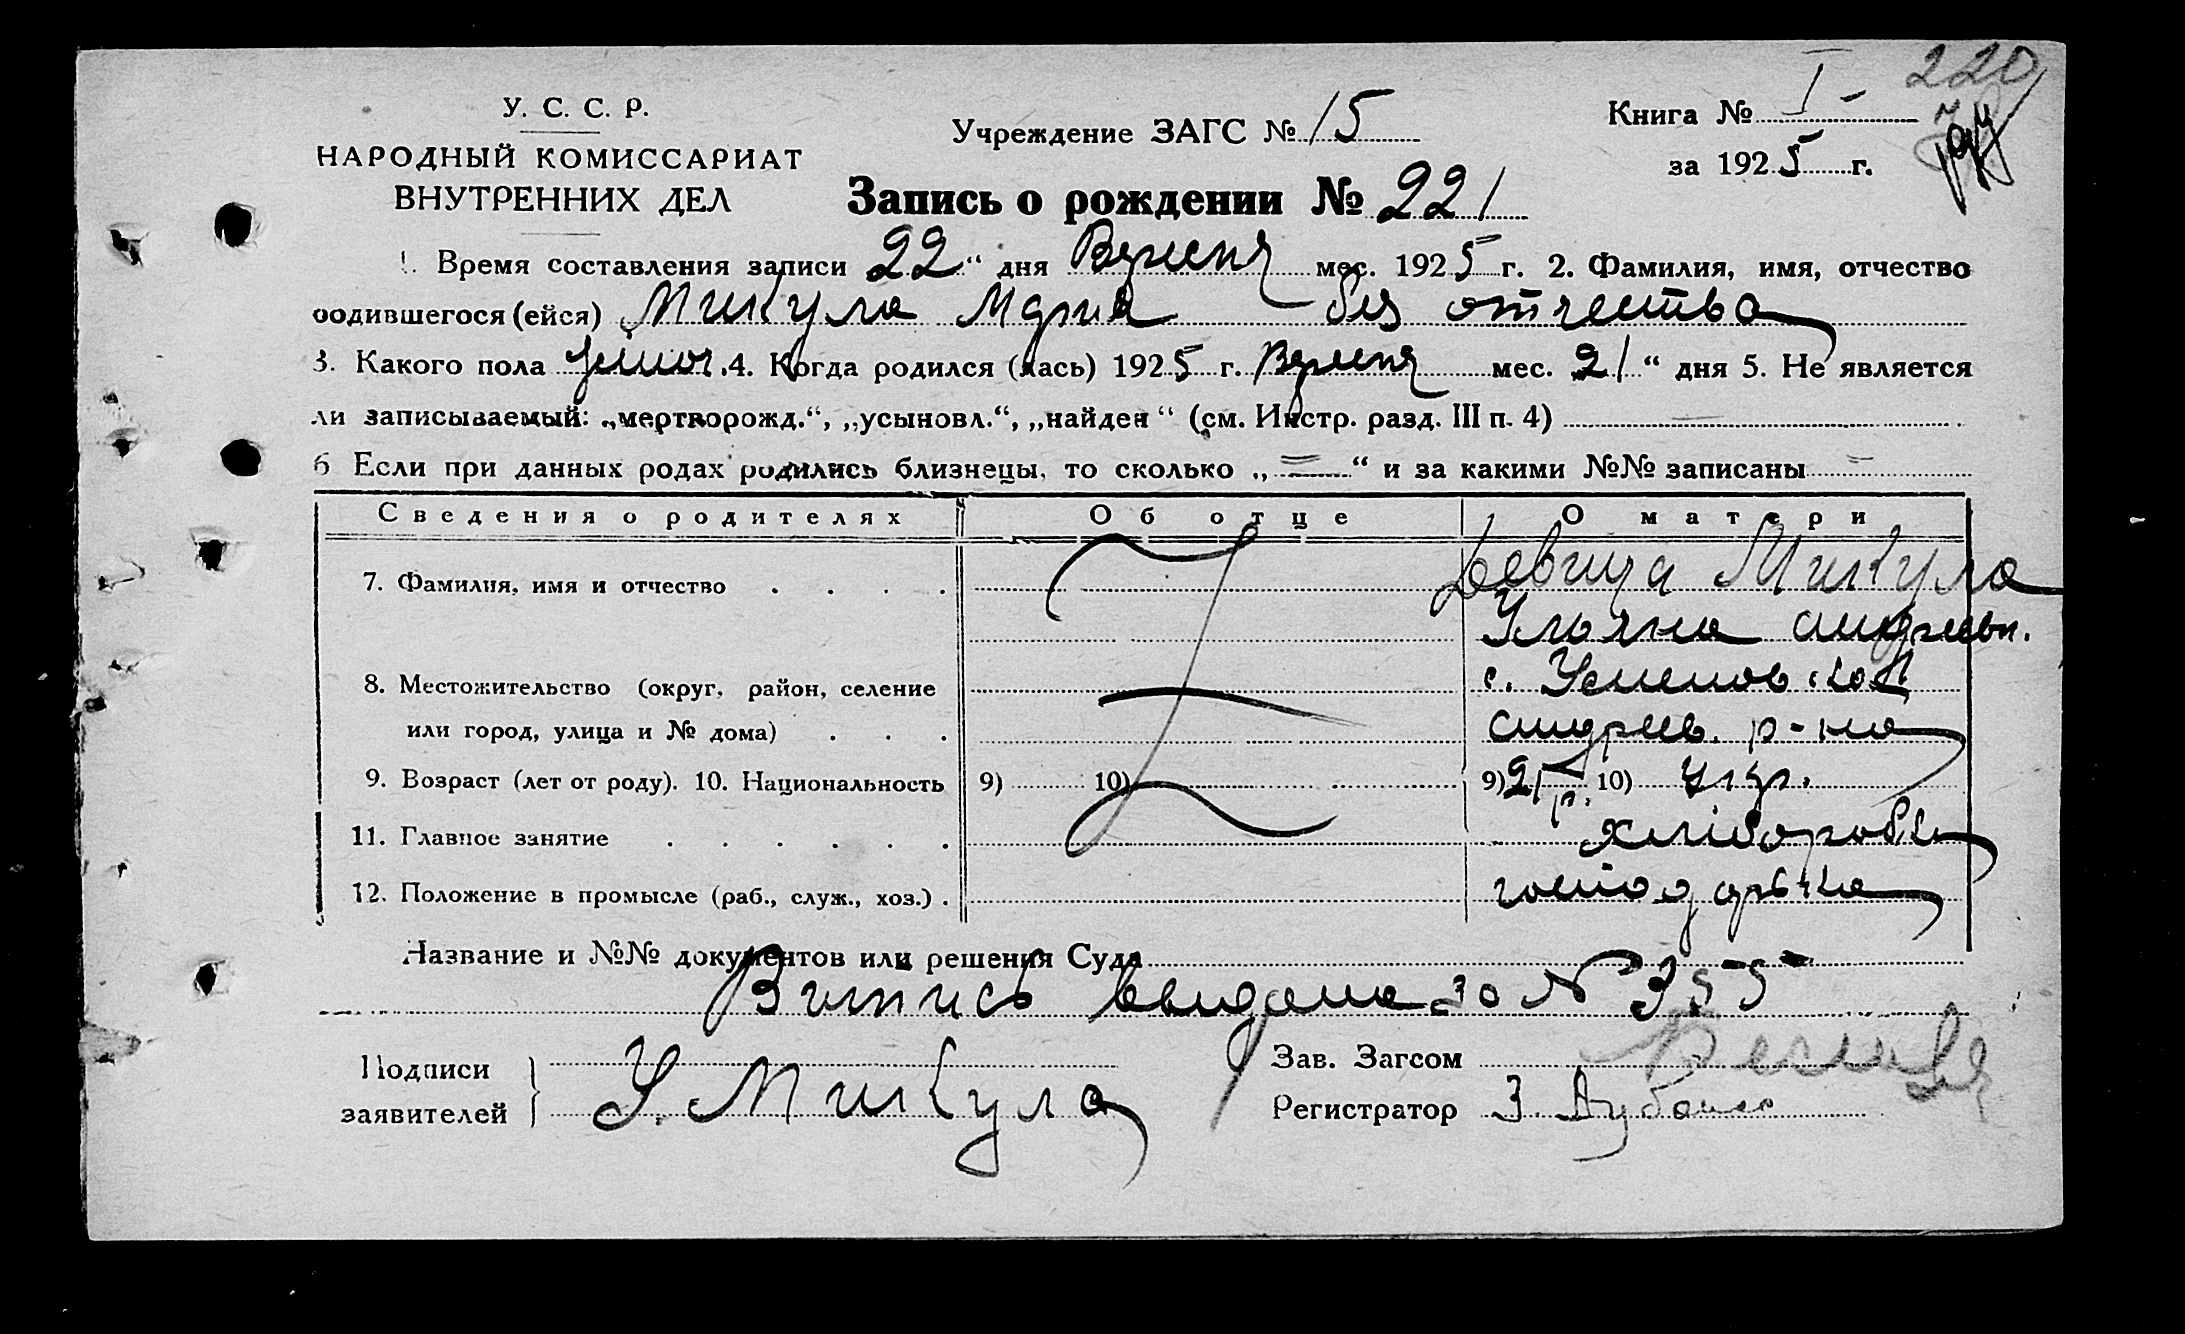 220
У. С. С. Р.
НАРОДНЫЙ КОМИССАРИАТ
ВНУТРЕННИХ ДЕЛ
Учреждение ЗАГС № 15
Книга № I -
за 1925 г.
Запись о рождении № 221
1. Время составления записи 22 “ дня Вересня мес. 1925 г. 2. Фамилия, имя, отчество
родившегося (ейся) Микула Мария без отчества
3. Какого пола жіноч. 4. Когда родился (лась) 1925 г. Вересня мес. 21 “ дня 5. Не является
ли записываемый: „мертворожд.“, „усыновл.“, „найден“ (см. Инстр. разд. III п. 4) —
6 Если при данных родах родились близнецы, то сколько „ = “ и за какими №№ записаны =
Сведения о родителях Об отце О матери
7. Фамилия, имя и отчество . . . . Девица Микула
Ульяна Андреевн.
8. Местожительство (округ, район, селение с.
или город, улица и № дома) . . . Андреев. р-на
9. Возраст (лет от роду). 10. Национальность 9) 10) 9) 21 р. 10) Укр.
11. Главное занятие . . . . . . хліборобка
12. Положение в промысле (раб., служ., хоз.) . господарька
Название и №№ документов или решения Суда
Випись выдана за № 355
Подписи
заявителей
У. Микула
Зав. Загсом
Регистратор З.